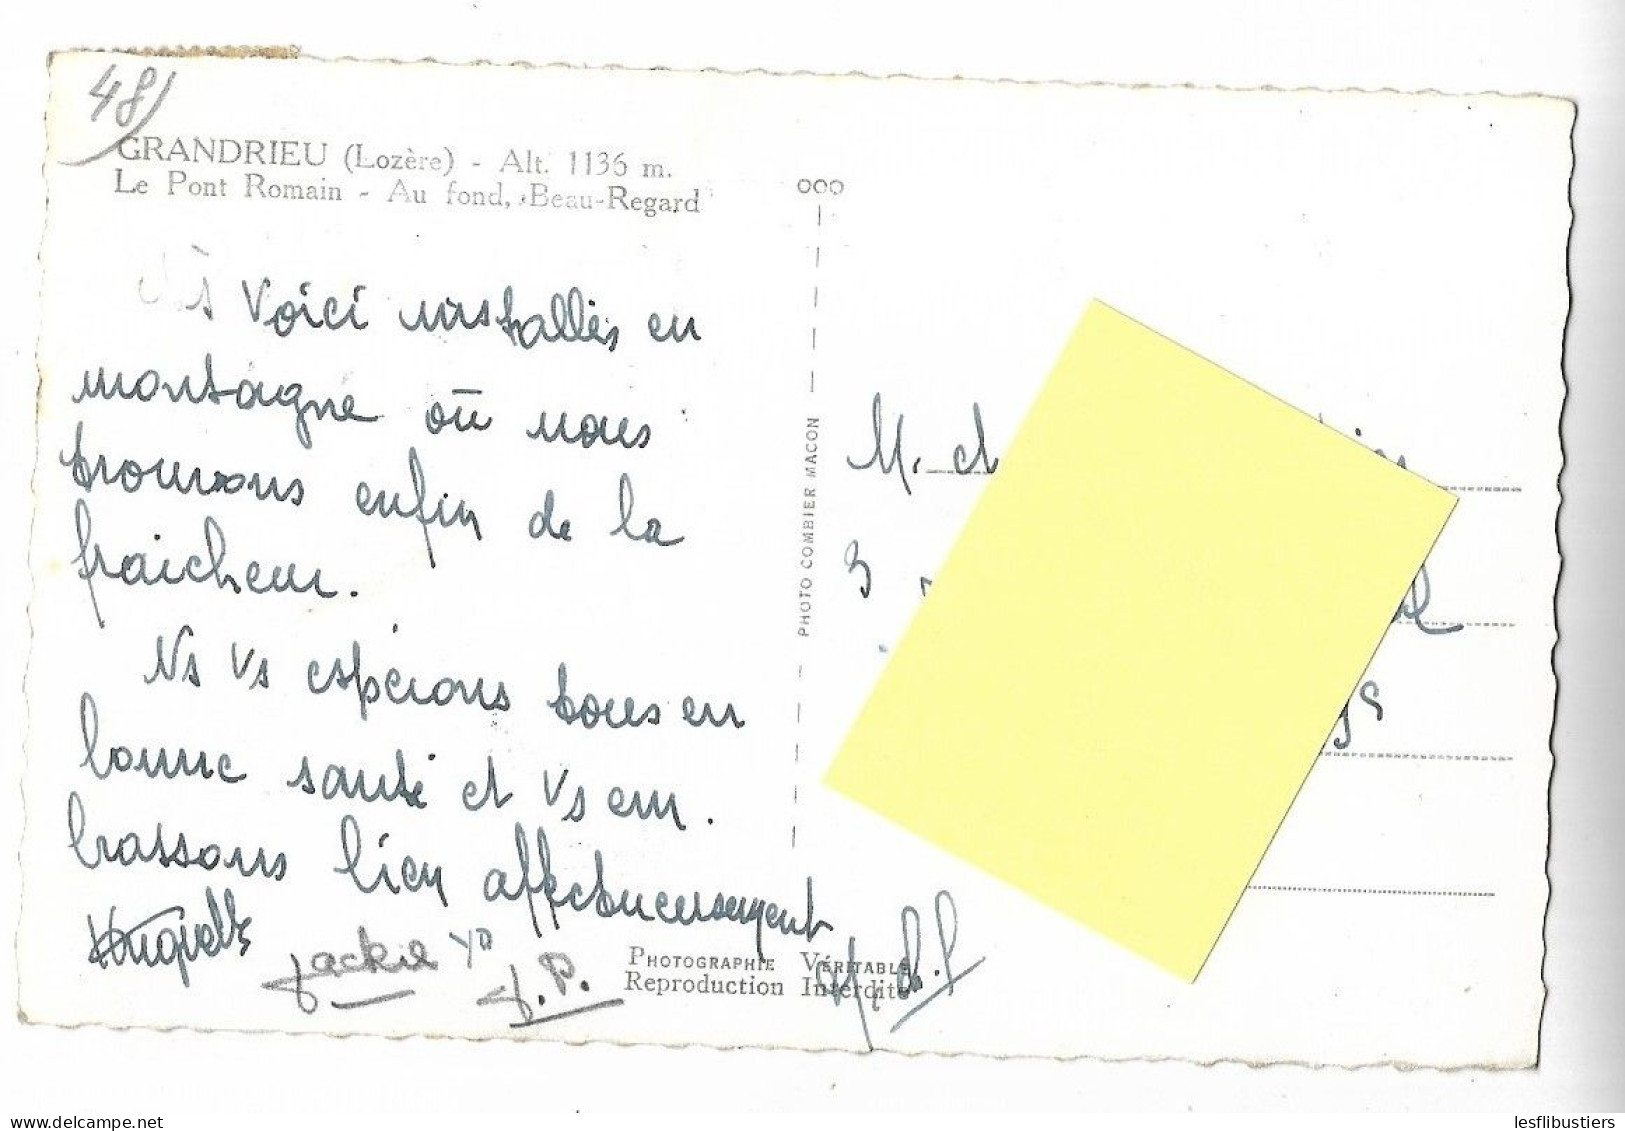 48)
GRANDRIEU (Lozère) - Alt. 1136 m.
Le Pont Romain - Au fond, Beau-Regard
ooo
Voici installés en
montagne où nous
trouvons enfin de la
fraicheur.
Ns Vs espérons tous en
bonne santé et Vs em.
brassons bien affectueusement
Huguette
Jackie
J.P.
PHOTOGRAPHIE VÉRITABLE
Reproduction Interdite
PHOTO COMBIER MACON
M. et
3
lesflibustiers